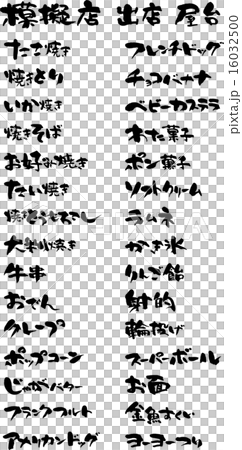 模擬店 出店 屋台
たこ焼き
焼きとり
いか焼き
焼きそば
お好み焼き
たい焼き
焼きとうもろこし
大判焼き
牛串
おでん
クレープ
ポップコーン
じゃがバター
フランクフルト
アメリカンドッグ
フレンチドッグ
チョコバナナ
ベビーカステラ
わた菓子
ポン菓子
ソフトクリーム
ラムネ
かき氷
りんご飴
射的
輪投げ
スーパーボール
お面
金魚すくい
ヨーヨーつり
16032500